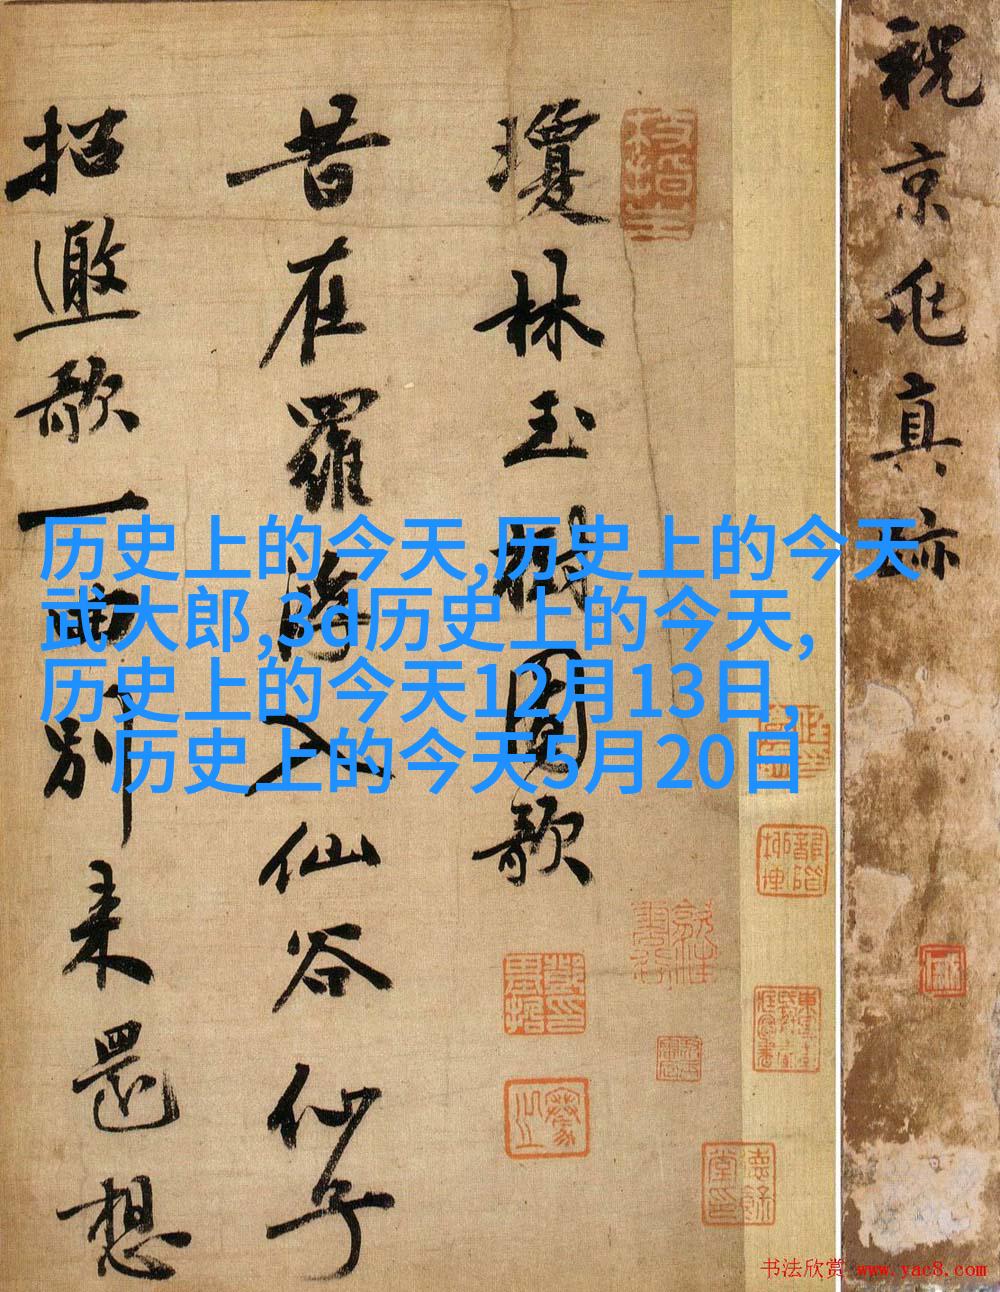 历史上的今天,历史上的今天
武大郎,3d历史上的今天,
历史上的今天12月13日,
历史上的今天5月20日
祝京兆真跡
瓊林玉樹圖歌
昔在羅浮入仙谷仙子
招邀歌一曲別來還想
书法欣赏 www.yac8.com